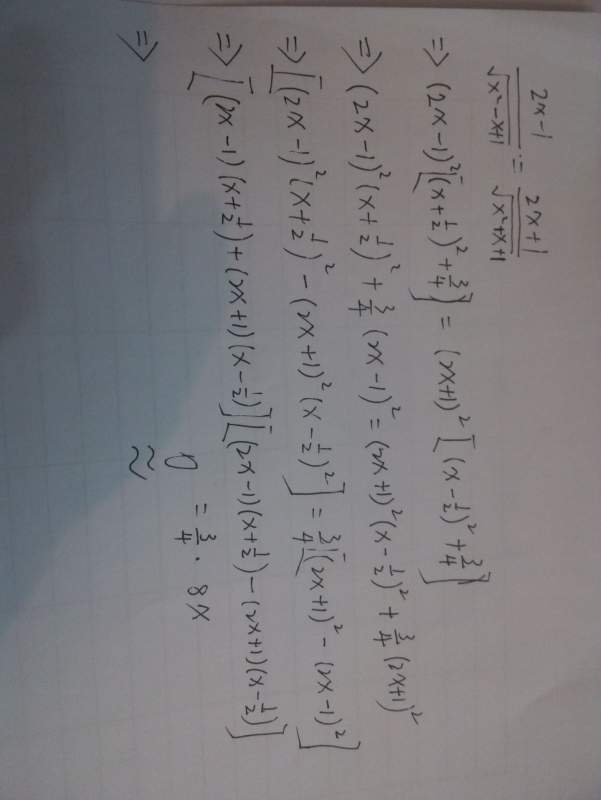 (2x-1)/√(x²-x+1) = (2x+1)/√(x²+x+1)
⇒ (2x-1)²[(x+1/2)²+3/4] = (2x+1)²[(x-1/2)²+3/4]
⇒ (2x-1)²(x+1/2)²+3/4(2x-1)² = (2x+1)²(x-1/2)²+3/4(2x+1)²
⇒ [(2x-1)²(x+1/2)²-(2x+1)²(x-1/2)²] = 3/4[(2x+1)²-(2x-1)²]
⇒ [(2x-1)(x+1/2)+(2x+1)(x-1/2)][(2x-1)(x+1/2)-(2x+1)(x-1/2)]
0 = 3/4 · 8x
⇒